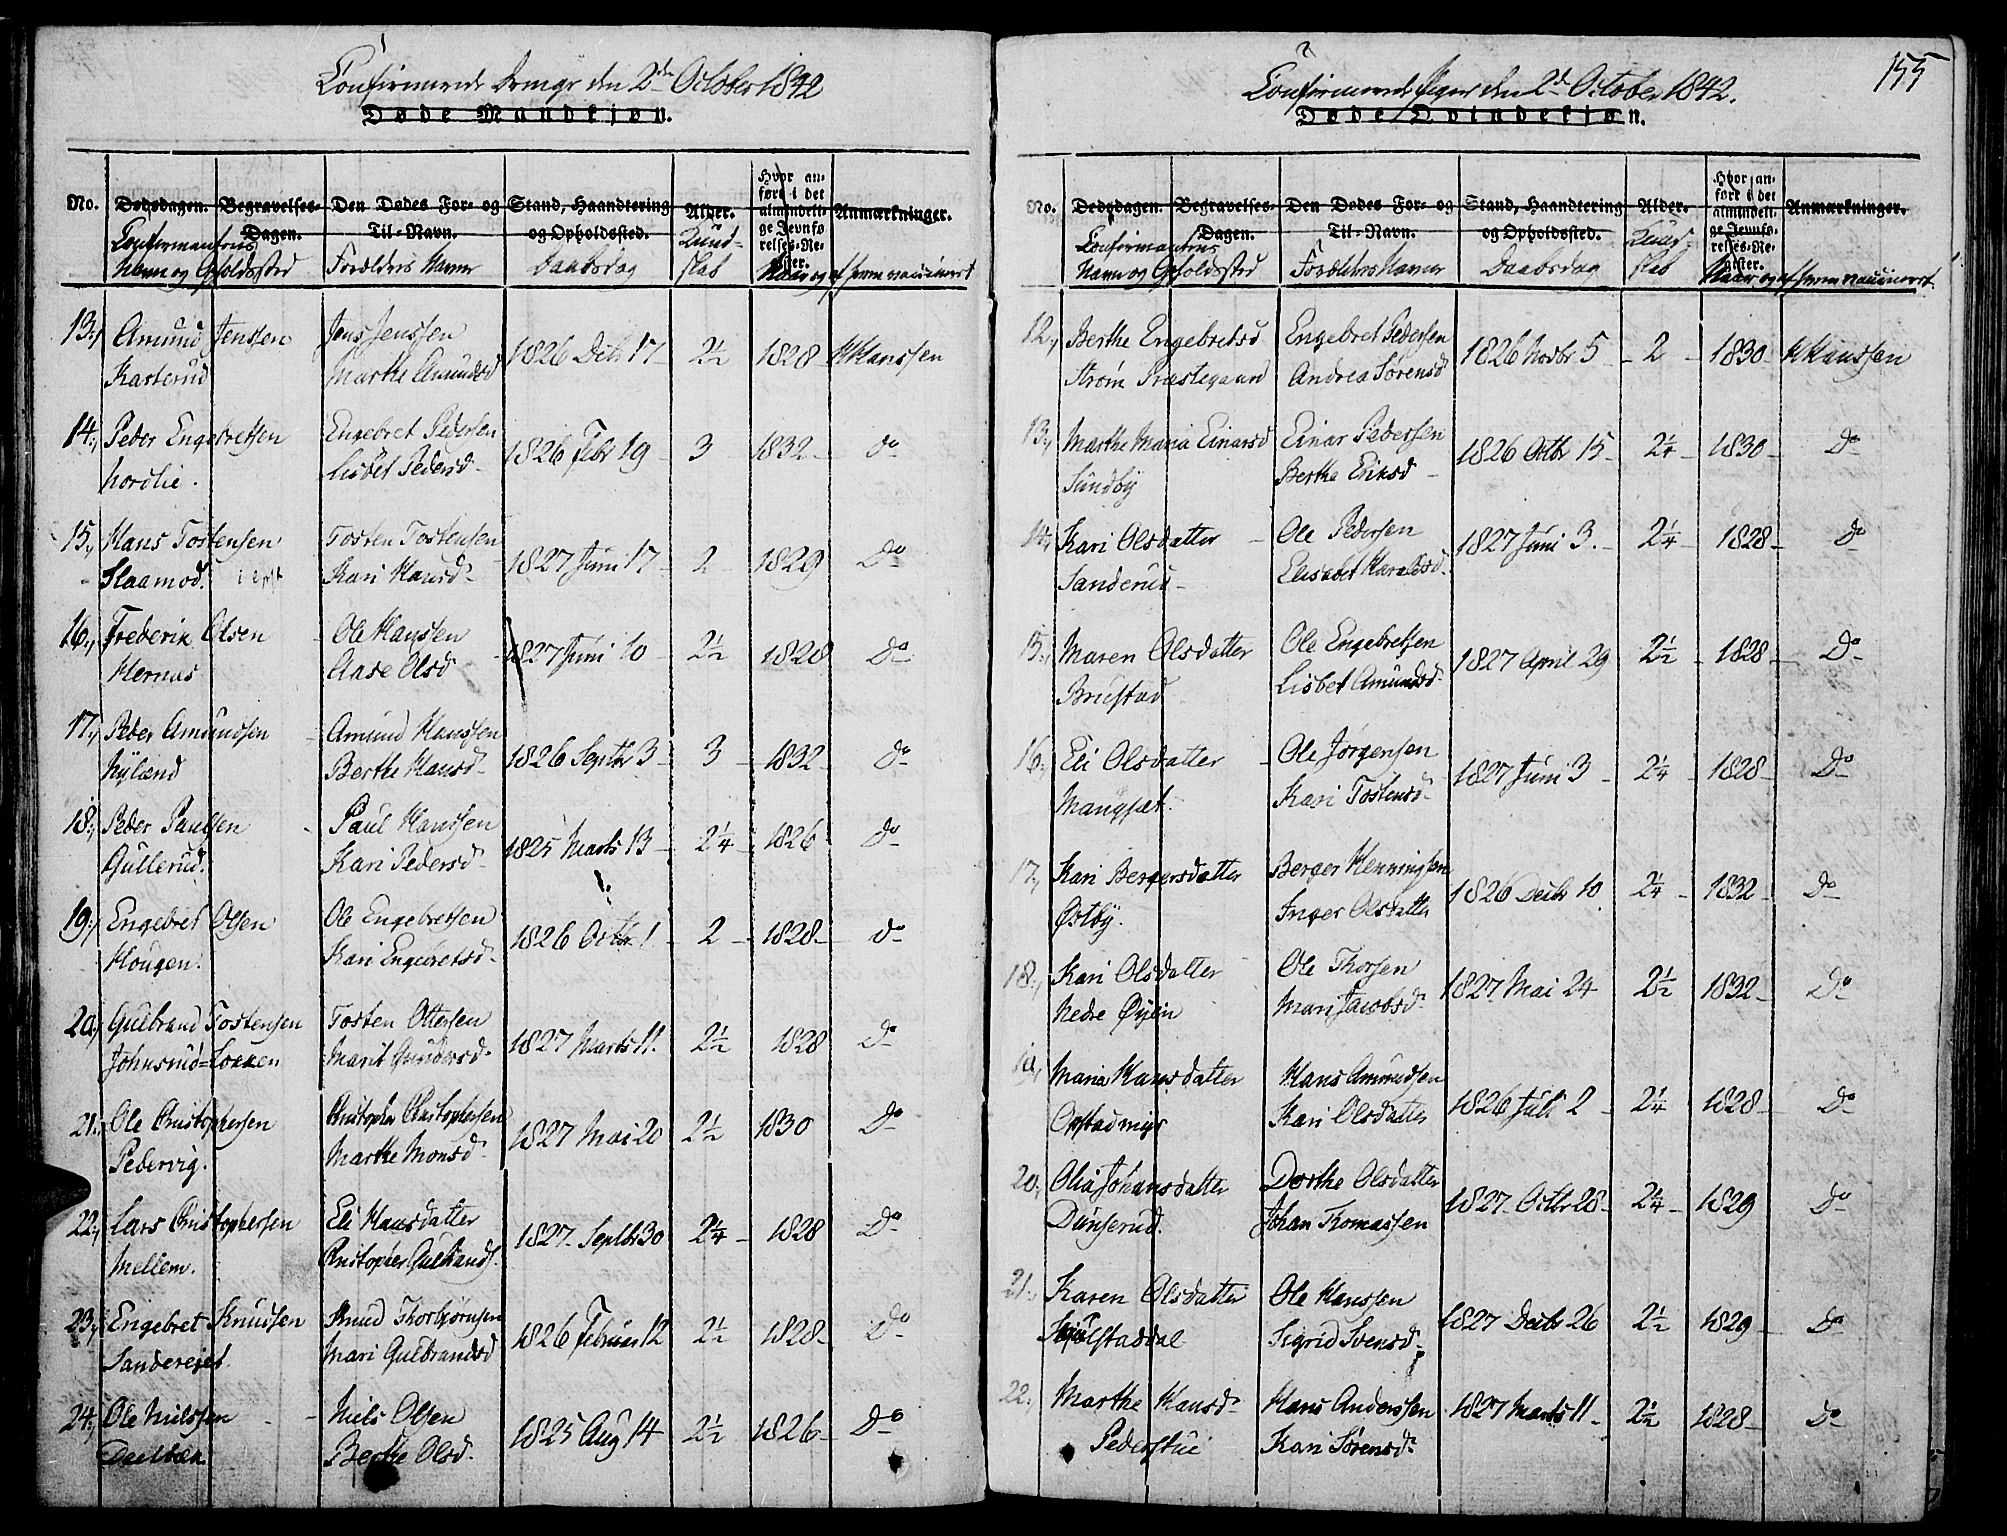 Confirmerede Drenge den 2den October 1842
Døde Mandkjøn.
No. Dødsdagen. Begravelses-Dagen. Den Dødes For- og Til-Navn. Stand, Haandtering og Opholdssted. Alder. Hvor anført i det almindelige Jevnførelses-Register. Anmærkninger.
Confirmantens Navn og Opholdssted Forældres Navne Daabsdag Kundskab Naar og af hvem vaccineret
13., Amund Jenssen Jens Jenssen 1826 Decbr 17 - 2½ 1828 HHanssen
Kasterud Marthe Amundsd
14., Peder Engebretsen Engebret Pedersen 1826 Febr 19 - 3 1832 - do
Nordlie. Lisbet Pedersd -
15., Hans Tostensen Tosten Tostensen 1827 Juni 17 - 2 - 1829 Do
Slaamod. Kari Hansd -
16., Frederik Olsen Ole Hanssen 1827 Juni 10 2½ 1828 Do
Hernæs Aase Olsd
17., Peder Amundsen Amund Hanssen 1826 Septbr 3 - 3 - 1832 Do
Nyland Berthe Hansd -
18., Peder Paulsen Paul Hanssen 1825 Marts 13 - 2¼ - 1826 Do
Gullerud. Kari Pedersd -
19., Engebret Olsen Ole Engebretsen 1826 Octbr 1 - 2 - 1828 - Do
Hougen. Kari Engebretsd -
20., Gulbrand Tostensen Tosten Ottersen 1827 Marts 11. 2½ 1828 Do
Johnsrud=Løkken Marit Gundersd -
21., Ole Christophersen Christopher Christophersen 1827 Mai 20 2½ 1830 Do
Pedervig. Marthe Monsd -
22., Lars Christophersen Eli Hansdatter 1827 - Septbr 30 2¼ - 1828 Do
Mellem. Christopher Gulbrands.
23., Engebret Knudsen Knud Thorbjørnsen 1826 Februar 12 2½ 1828 - Do
Sandereiet. Mari Gulbrandsd
24., Ole Nielssen Niels Olsen 1825 Aug 14 2½ 1826 - Do
Dælbæk. Berthe Olsd.
155
Confirmerede Piger den 2d October 1842.
Døde Qvindekjøn.
No. Dødsdagen. Begravelses-Dagen. Den Dødes For- og Til-Navn. Stand, Haandtering og Opholdssted. Alder. Hvor anført i det almindelige Jevnførelses-Register. Anmærkninger.
Confirmantens Navn og Opholdssted Forældres Navne Daabsdag Kundskab Naar og af hvem vaccineret
12., Berthe Engebretsd Engebret Pedersen 1826 Novbr 5 - 2 - 1830 - HHanssen
Strøm Præstegaard Andrea Sørensd
13., Marthe Maria Einarsd Einar Pedersen 1826 Octbr 15 - 2¼ - 1830 - Do
Sundby Berthe Eriksd -
14., Kari Olsdatter - Ole Pedersen 1827 Juni 3. - 2¼ - 1828 - Do
Sanderud - Elisabet Haralsd -
15., Maren Olsdatter Ole Engebretsen 1827 April 29 2½ - 1828 - Do
Brustad Lisbet Amundsd -
16., Eli Olsdatter - Ole Jørgensen 1827 Juni 3 - 2¼ - 1828 - Do
Mangset. Kari Tostensd -
17., Kari Bergersdatter Berger Henningsen 1826 Decbr 10 2¼ - 1832 - Do
Østby. Inger Olsdatter
18., Kari Olsdatter Ole Thorsen 1827 Mai 24 2½ 1832 - Do
Nedre Øyen Mari Jacobsd -
19., Maria Hansdatter Hans Amundsen 1826 Juli 2 - 2¼ 1828 - Do
Opstadmyr Kari Olsdatter
20., Olia Johansdatter Dorthe Olsdatter 1827 - Octbr 28 - 2¼ - 1829 Do
Dunserud. Johan Thomassen
21., Karen Olsdatter Ole Hanssen 1827 Decbr 26 2½ 1829 - Do
Sigrid Svensd -
22., Marthe Hansd - Hans Anderssen 1827 Marts 11 - 2½ 1828 - Do
Pederstue Kari Sørensd -